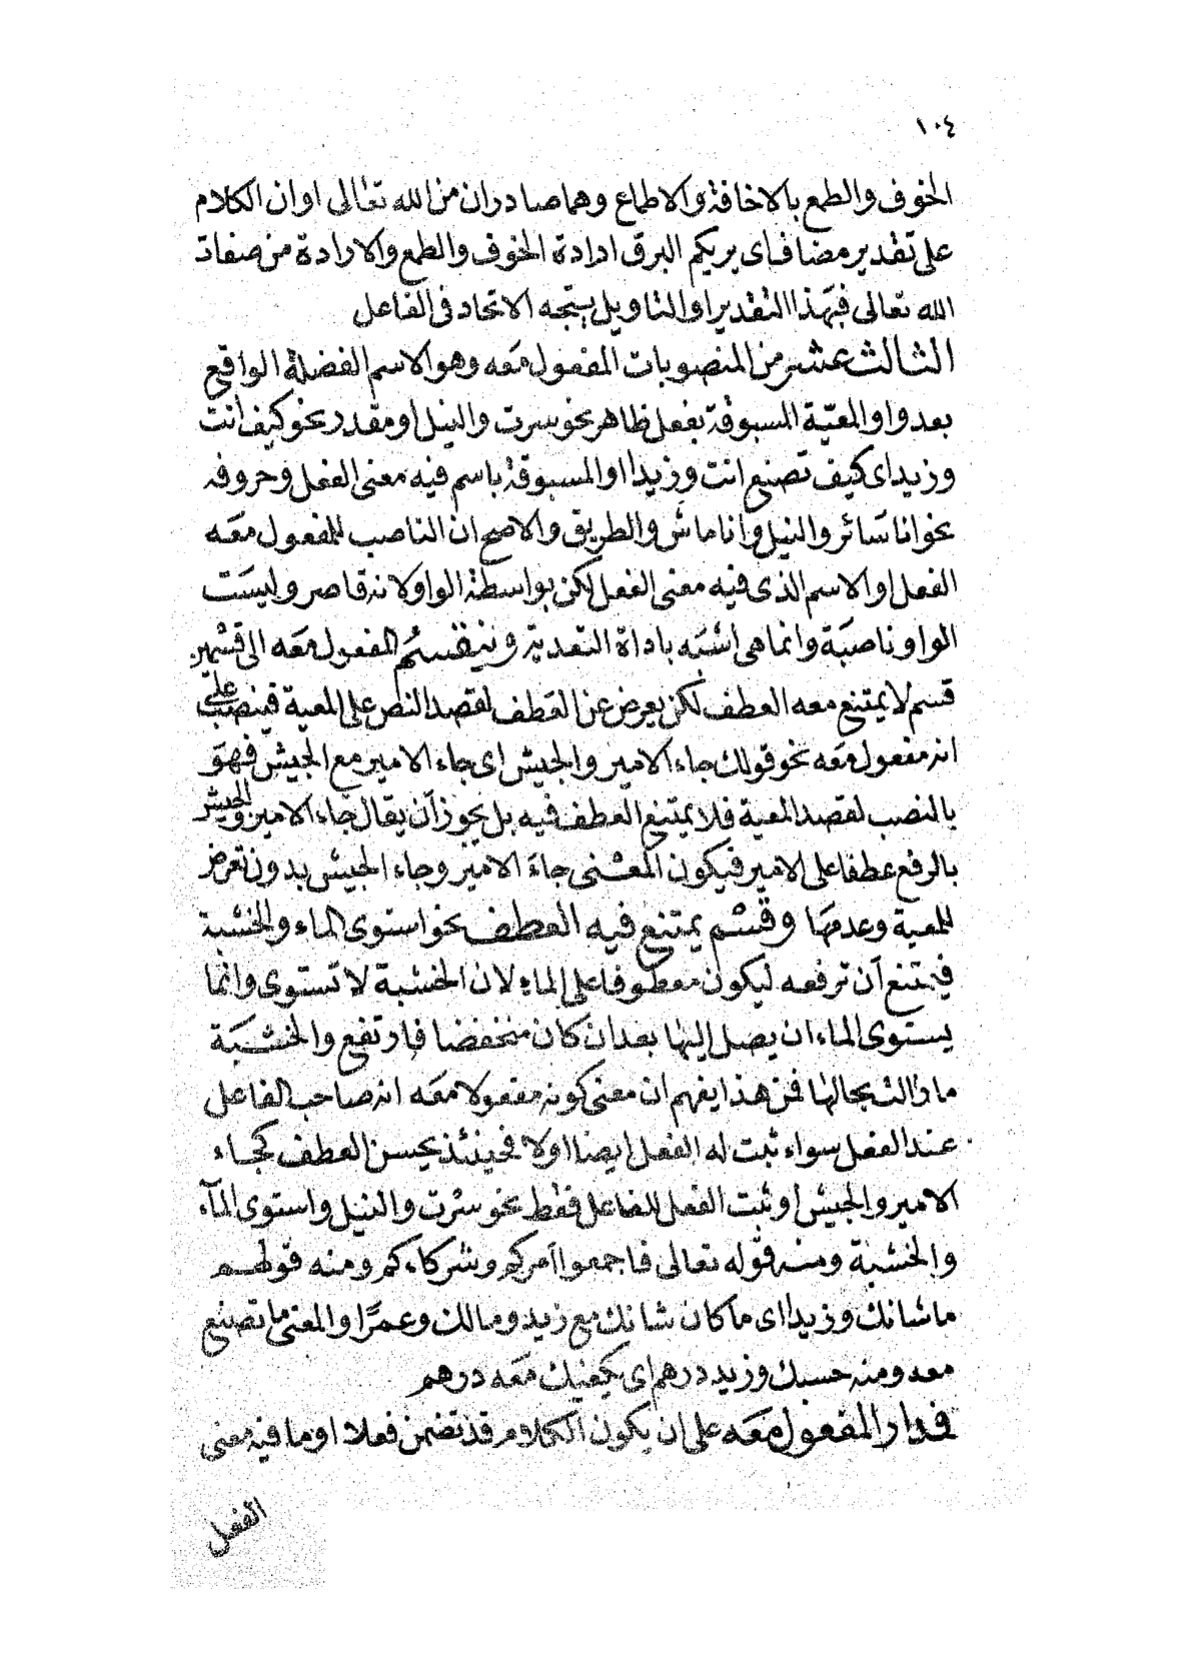 ١٠٤
الخوف والطمع بالاخافة والاطماع وهما صادران من الله تعالى او ان الكلام
على تقدير مضاف اى يريكم البرق ارادة الخوف والطمع والارادة من صفات
الله تعالى فبهذا التقدير او التاويل يتجه الاتحاد فى الفاعل
الثالث عشر من المنصوبات المفعول معه وهو الاسم الفضلة الواقع
بعد واو المعيّة المسبوقة بفعل ظاهر نحو سرت والنيل او مقدر نحو كيف انت
وزيدا اى كيف تصنع انت وزيدا او المسبوقة باسم فيه معنى الفعل وحروفه
نحو انا سَائر والنيل وانا ماش والطريق والاصح ان الناصب للمفعول معَه
الفعل او الاسم الذى فيه معنى الفعل لكن بواسطة الواو لانه قاصر وليسَت
الواو ناصبَة وانما هى اشبَه باداة التعدية وينقسم المفعول معَه الى قسمين
قسم لا يمتنع معه العطف لكن يعرض عن العَطف لقصد النص على المعية فينصب على
انه مفعول معَه نحو قولك جاء الامير والجيش اى جاء الامير مع الجيش فهوَ
بالنصب لقصد المعية فلا يمتنع العطف فيه بل يجوز أن يقال جاء الامير والجيش
بالرفع عطفا على الامير فيكون المعْنى جاءَ الامير وجاء الجيش بدون تعرض
للمعية وعدمها وقسْم يمتنع فيه العطف نحو استوى الماء والخشبة
فيمتنع أن ترفعه ليكون معطوفا على الماء لان الخشبة لا تستوى وانما
يستوى الماء ان يصل اليها بعد ان كان منخفضا فارتفع والخشبَة
ما زالت بحالها فمن هذا يفهم ان معنى كونه مفعولا معَه انه صاحب الفاعل
عند الفعل سواء ثبت له الفعل ايضا اولا فحينئذ يحسن العطف كجاء
الامير والجيش او ثبت الفعل للفاعل فقط نحو سرت والنيل واستوى المآء
والخشبة ومنه قوله تعالى فاجمعوا أمركم وشركاءكم ومنه قولهم
ما شانك وزيدا اى ما كان شانك مع زيد ومالك وعمرًا والمعنى ما تصنع
معه ومنه حسبك وزيد درهم اى يكفيك معَه درهم
فمدار المفعول معَه على ان يكون الكلام قد تضمن فعلا او ما فيه معنى
الفعل